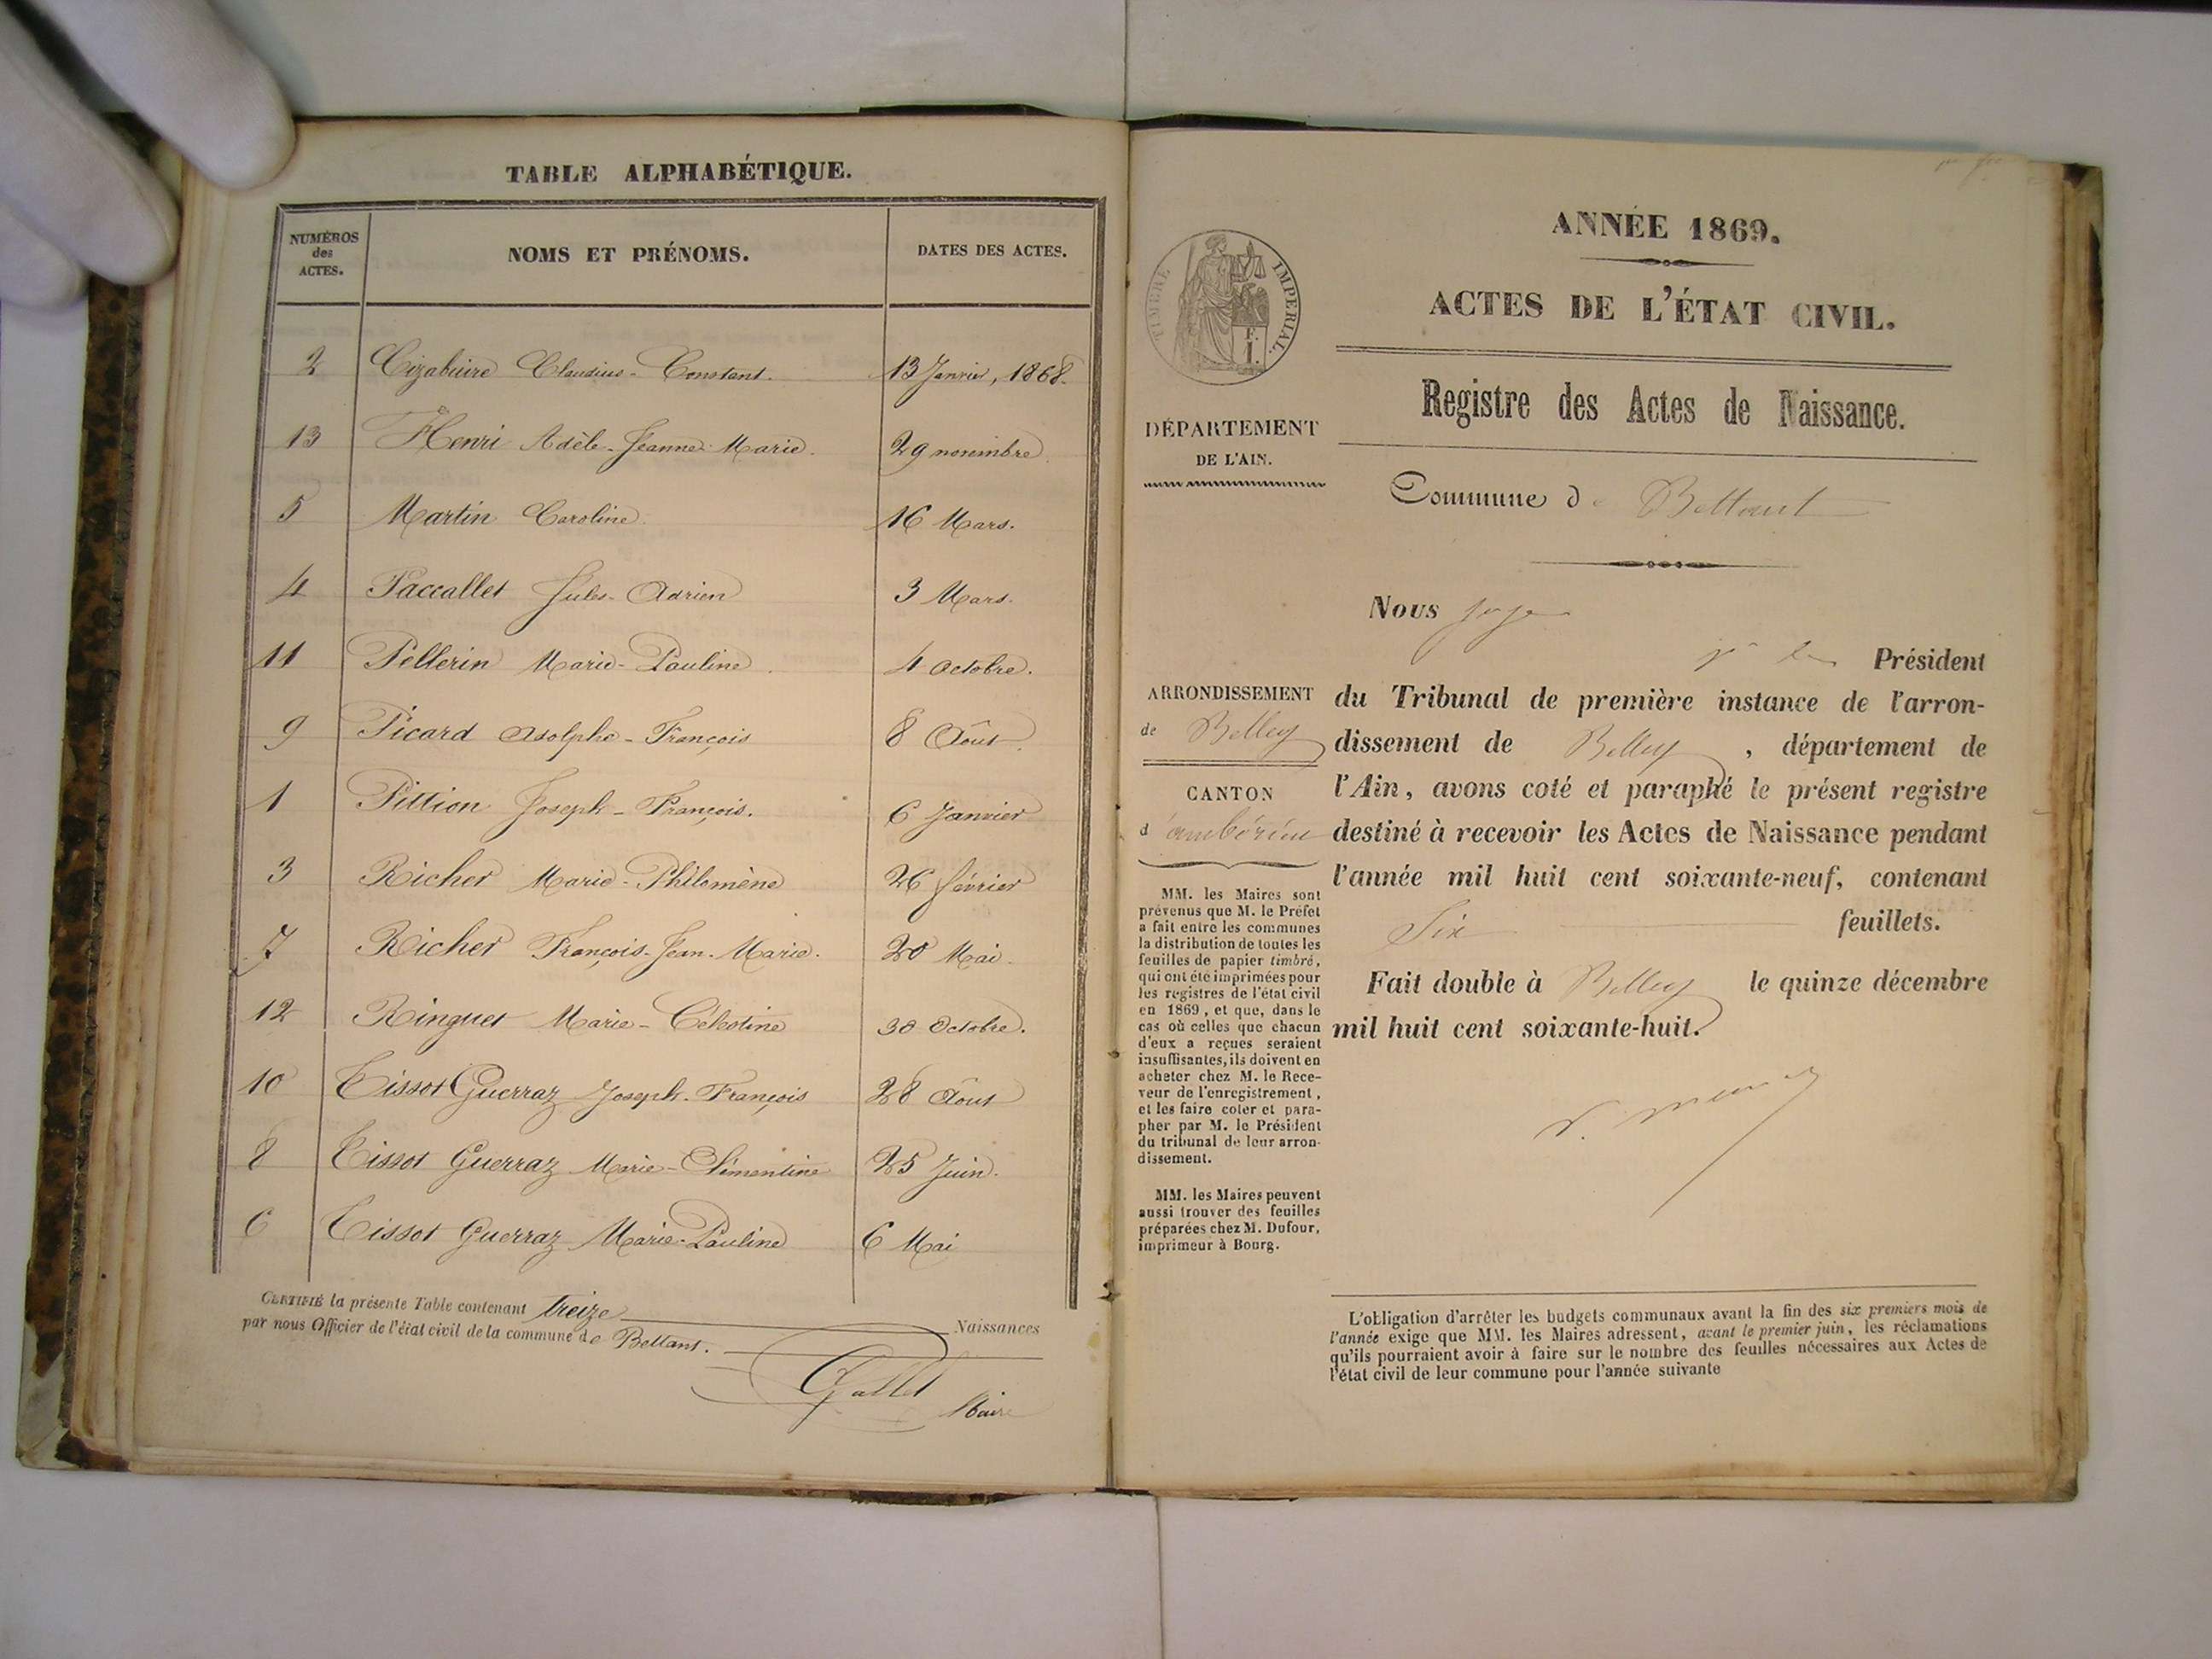 TABLE ALPHABÉTIQUE.
NUMÉROS des ACTES. NOMS ET PRÉNOMS. DATES DES ACTES.
2 Claudius-Constant. 13 Janvier, 1868.
13 Henri Adèle-Jeanne-Marie. 29 novembre
5 Martin Caroline. 16 Mars.
4 Paccallet Jules-Adrien 3 Mars.
11 Pellerin Marie-Pauline. 4 Octobre.
9 Picard Adolphe-François 8 Août.
1 Pittion Joseph-François. 6 Janvier
3 Richer Marie-Philomène 26 février
7 Richer François-Jean-Marie. 20 Mai.
12 Ringuet Marie-Célestine 30 Octobre.
10 Tissot Guerraz Joseph-François 28 Août
8 Tissot Guerraz Marie-Clémentine 25 Juin.
6 Tissot Guerraz Marie-Pauline 6 Mai
CERTIFIÉ la présente Table contenant treize Naissances
par nous Officier de l'état civil de la commune de Bettant.
Gallet
Maire
ANNÉE 1869.
ACTES DE L'ÉTAT CIVIL.
Registre des Actes de Naissance.
TIMBRE IMPERIAL.
E.
I.
DÉPARTEMENT
DE L'AIN.
Commune de Bettant
ARRONDISSEMENT
de Belley
CANTON
d'ambérieu
MM. les Maires sont
prévenus que M. le Préfet
a fait entre les communes
la distribution de toutes les
feuilles de papier timbré,
qui ont été imprimées pour
les registres de l'état civil
en 1869, et que, dans le
cas où celles que chacun
d'eux a reçues seraient
insuffisantes, ils doivent en
acheter chez M. le Rece-
veur de l'enregistrement,
et les faire coter et para-
pher par M. le Président
du tribunal de leur arron-
dissement.
MM. les Maires peuvent
aussi trouver des feuilles
préparées chez M. Dufour,
imprimeur à Bourg.
Nous juge
Président
du Tribunal de première instance de l'arron-
dissement de Belley, département de
l'Ain, avons coté et paraphé le présent registre
destiné à recevoir les Actes de Naissance pendant
l'année mil huit cent soixante-neuf, contenant
Six feuillets.
Fait double à Belley le quinze décembre
mil huit cent soixante-huit.
L'obligation d'arrêter les budgets communaux avant la fin des six premiers mois de
l'année exige que MM. les Maires adressent, avant le premier juin, les réclamations
qu'ils pourraient avoir à faire sur le nombre des feuilles nécessaires aux Actes de
l'état civil de leur commune pour l'année suivante